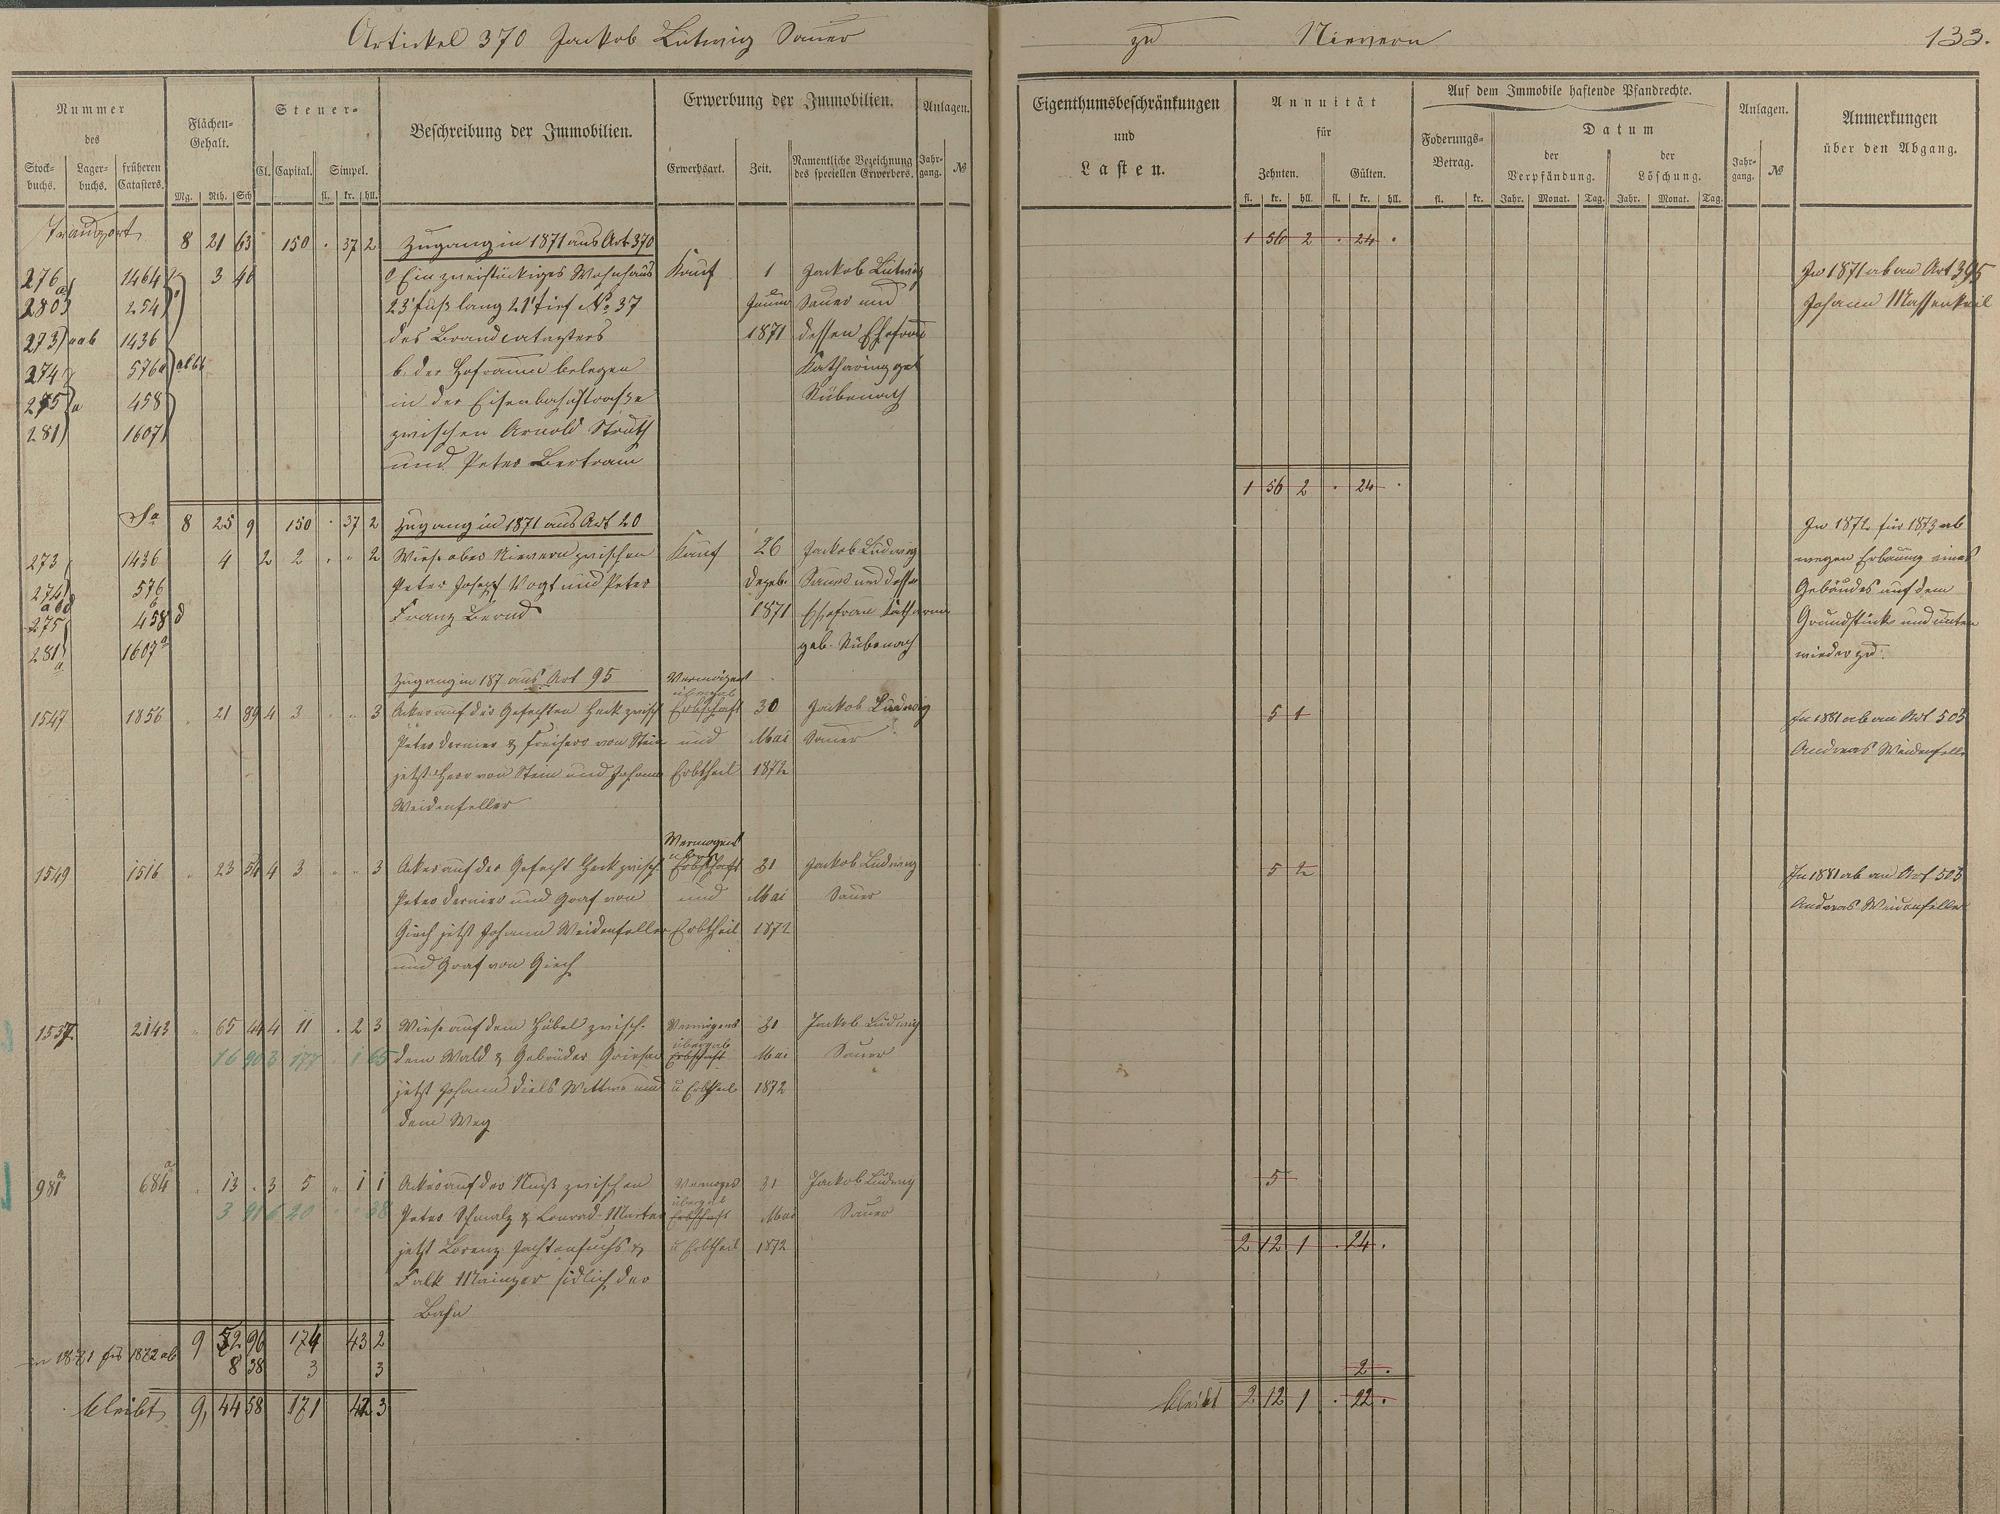 Artickel 370 Jackob Lutwig Sauer
zu Nievern 133.
Nummer
des
Stock-
buchs.
Lager-
buchs.
früheren
Catasters.
Flächen-
Gehalt.
Mg. Rth. Sch
Steuer-
Cl. Capital. Simpel.
fl. kr. hll.
Beschreibung der Immobilien.
Erwerbung der Immobilien.
Erwerbsart. Zeit.
Namentliche Bezeichnung
des speciellen Erwerbers.
Anlagen.
Jahr-
gang.
№
Eigenthumsbeschränkungen
und
Lasten.
Annuität
für
Zehnten. Gülten.
fl. kr. hll. fl. kr. hll.
Auf dem Immobile haftende Pfandrechte.
Foderungs-
Betrag.
fl. kr.
Datum
der
Verpfändung.
der
Löschung.
Jahr. Monat. Tag. Jahr. Monat. Tag.
Anlagen.
Jahr-
gang.
№
Anmerkungen
über den Abgang.
Transport 8 21 63 150 . 37 2 Zugang in 1871 aus Art 370 1 56 2 . 24 .
276 1464 3 46 Ein zweistöckiges Wohnhaus Kauf 1 Jackob Lutwig In 1871 ab an Art 395
280 254 23' Fuß lang 21' tief No 37 Sauer und Johann Massenkeil
273 aab 1436 des Brandcatasters 1871 dessen Ehefrau
274 576a b. der Hofraum belegen Katharina geb
275 a 458 in der Eisenbahnstraße Rübenach
281 1607 zwischen Arnold Struth
und Peter Bertram
1 56 2 . 24 .
Sa 8 25 9 150 . 37 2 Zugang in 1871 aus Art 20 In 1872 für 1873 ab
273 1436 4 2 2 . " 2 Wiese ober Nievern zwischen Kauf 26 Jackob Ludwig wegen Erbauung eines
274 576 Peter Joseph Vogt und Peter Dezeb. Sauer und dessen Gebäudes auf dem
abd
275 458 d Franz Bernd 1871 Ehefrau Katharina Grundstück und unten
281 1607a geb. Rübenach wieder zu.
a
Zugang in 187 aus Art 95 Vermögens
übergab
1547 1856 21 89 4 3 . " 3 Acker auf der Gefechten Heck zwisch Erbschaft 30 Jackob Ludwig 5 1 In 1881 ab an Art 503
Peter Dernier & Freiherr von Stein und Mai Sauer Andreas Weidenfeller
jetzt Herr von Stein und Johann Erbtheil 1872
Weidenfeller
Vermögens
1549 1516 23 54 4 3 . " 3 Acker auf der Gefecht Heck zwisch. Erbschaft 31 Jackob Ludwig 5 2 In 1881 ab an Art 503
Peter Dernier und Graf von und Mai Sauer Andreas Weidenfeller
Giech jetzt Johann Weidenfeller Erbtheil 1872
und Graf von Giech
1537 2143 65 44 4 11 . 2 3 Wiese auf dem Hübel zwisch. Vermögens 31 Jackob Ludwig
übergab
16 90 3 177 1 65 dem Wald & Gebrüder Erbschaft Mai Sauer
jetzt Johann Diels Wittwe und u Erbtheil 1872
dem Weg
981a 684a 13 . 3 5 " 1 1 Acker auf der zwischen Vermögens 31 Jackob Ludwig 5
übergab
3 91 6 20 38 Peter Schmalz & Conrad Erbschaft Mai Sauer
jetzt Lorenz & u Erbtheil 1872 2 12 1 . 24 .
Falk Mainzer südlich der
Bahn
9 52 96 174 43 2
in 1871 für 1872 ab 8 38 3 3 2 .
bleibt 9, 44 58 171 42 3 bleibt 2 12 1 . 22 .